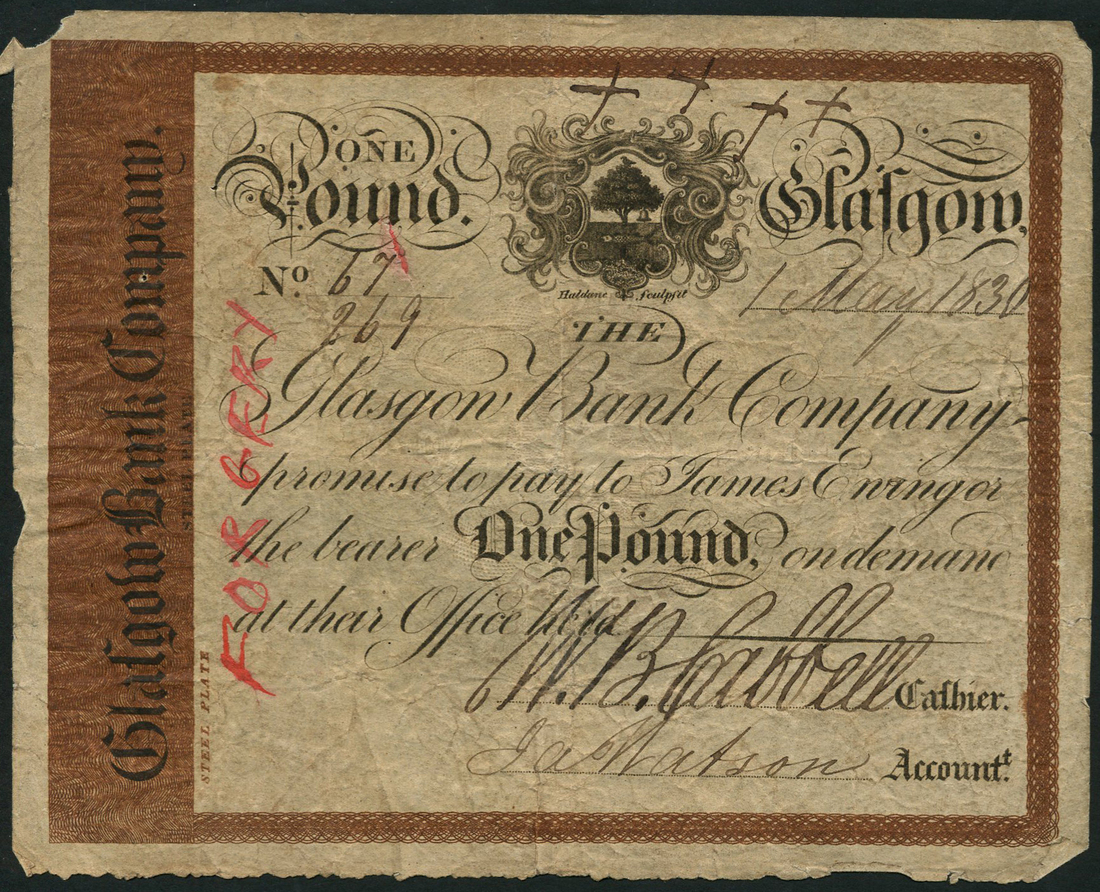 ONE
Pound.
Glaſgow,
No. 67
269
Haldane Sculpſit
1 May 1830
THE
Glasgow Bank Company
promise to pay to James Ewing or
the bearer One Pound, on demand
at their Office here
W. B. Cabbell Caſhier.
Ja Watson Accountt.
Glaſgow Bank Company.
STEEL PLATE
STEEL PLATE
FORGERY